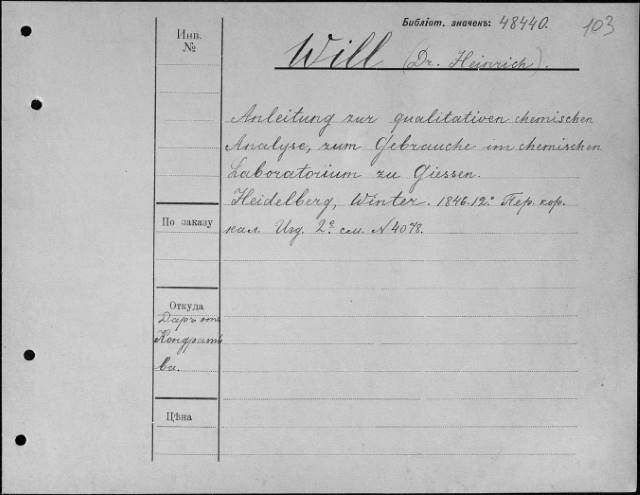 Библіот. значекъ: 48440. 103
Инв.
№
Will (Dr. Heinrich).
Anleitung zur qualitativen chemischen
Analyse, zum Gebrauche im chemischen
Laboratorium zu Giessen.
Heidelberg, Winter. 1846. 12º Пер. кор.
кал. Изд. 2º см. N 4078.
По заказу
Откуда
Даръ отъ
Кондратье
ва.
Цѣна